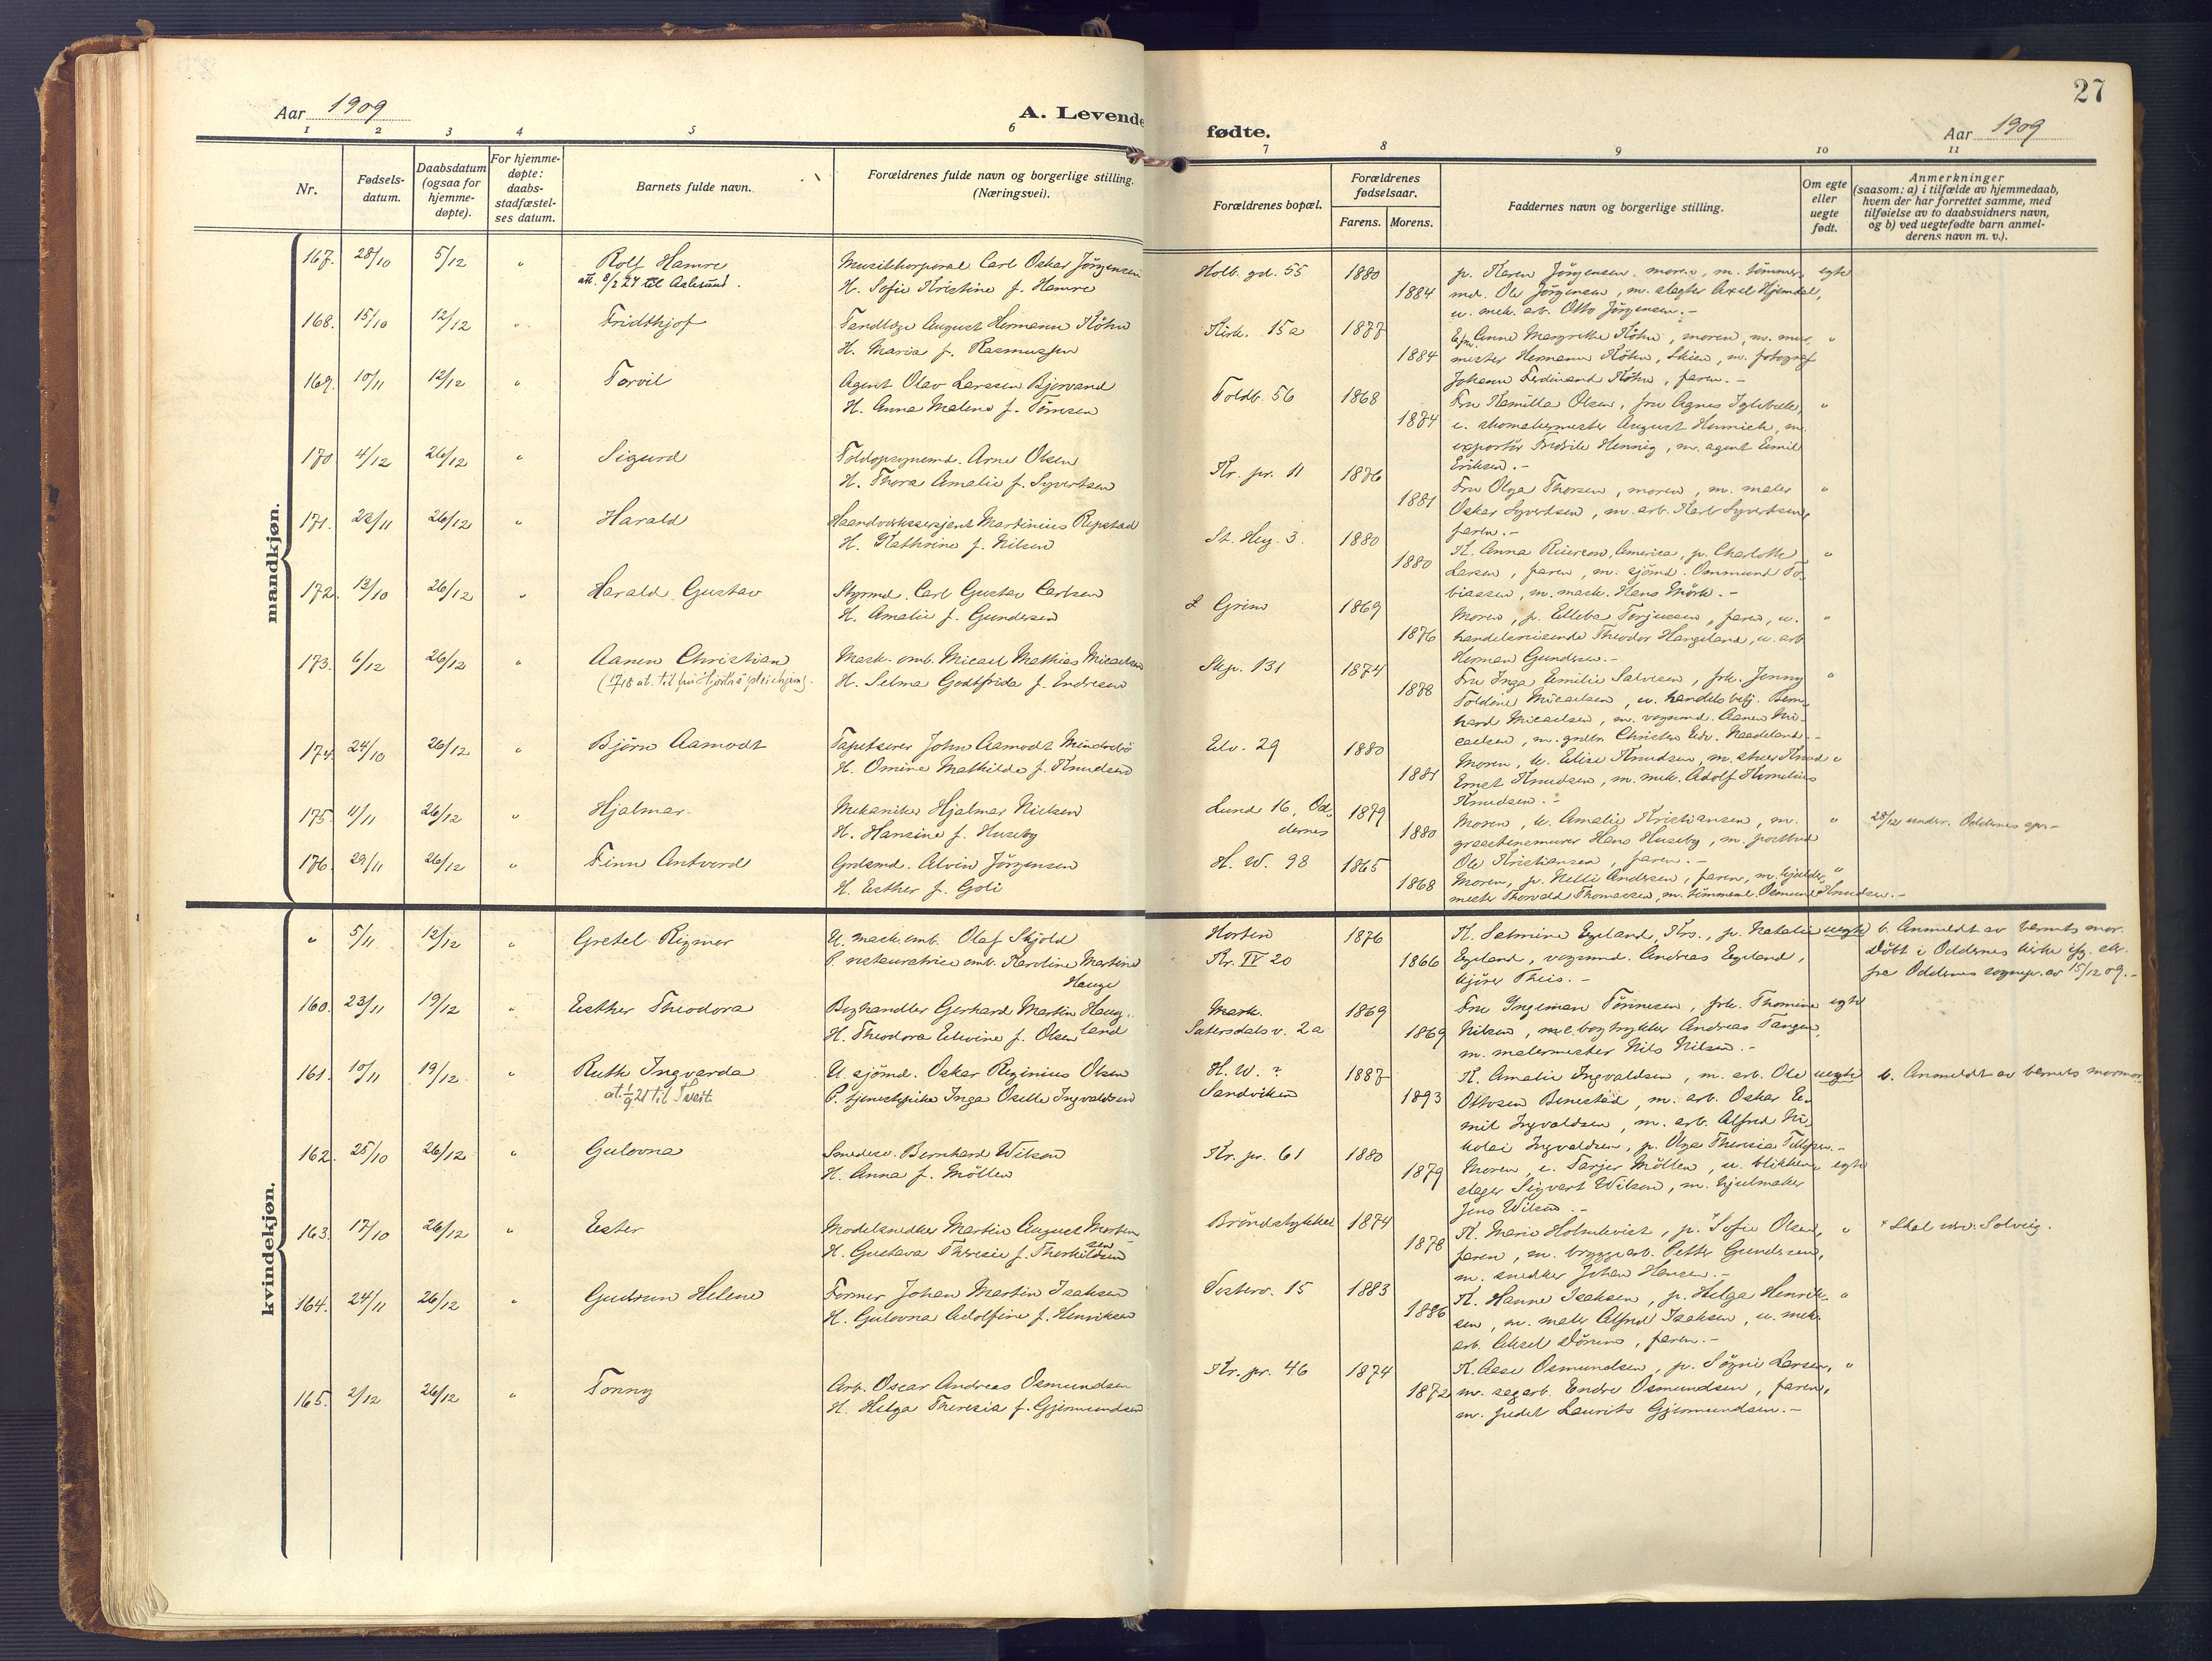 27
Aar 1909
A. Levende fødte.
Aar 1909
1 2 3 4 5 6 7 8 9 10 11
Nr.
Fødsels-
datum.
Daabsdatum
(ogsaa for
hjemme-
døpte).
For hjemme-
døpte:
daabs-
stadfæstel-
ses datum.
Barnets fulde navn.
Forældrenes fulde navn og borgerlige stilling.
(Næringsvei).
Forældrenes bopæl.
Forældrenes
fødselsaar.
Farens. Morens.
Faddernes navn og borgerlige stilling.
Om egte
eller
uegte
født.
Anmerkninger
(saasom: a) i tilfælde av hjemmedaab,
hvem der har forrettet samme, med
tilføielse av to daabsvidners navn,
og b) ved uegtefødte barn anmel-
derens navn m. v.).
mandkjøn.
167. 28/10 5/12 " Rolf Hamre
att. 8/2 24 til Aalesund.
Musikkorporal Carl Oskar Jörgensen
H. Sofie Kristine f. Hamre
Holb. gd. 55 1880 1884
p. Karen Jörgensen, moren, m. tömmer-
md. Ole Jörgensen, m. slagter Axel Hjemdal,
u. mek. arb. Otto Jörgensen.-
egte
168. 15/10 12/12 " Fridthjof
Tandlæge August Hermann Köhn
H. Maria f. Rasmussen
Kirk. 15a 1877 1884
Anna Margrethe Köhn, moren, m. mur-
mester Hermann Köhn, Skien, m. fotograf
Johann Ferdinand Köhn, faren.-
"
169. 10/11 12/12 " Torvil
Agent Olav Larssen Bjorvand
H. Anna Malene f. Tönnesen
Toldb. 56 1868 1874
Fru Kamilla Olsen, fru Agnes
e. skomakermester August Henrich, m.
exportör Fredrik Hennig, m. agent Emil
Eriksen.-
170 4/12 26/12 " Sigurd
Toldopsynsmd. Arne Olsen
H. Thora Amalie f. Syvertsen
Kr. pr. 11 1876 1881
Fru Olga Thorsen, moren, m. maler
Oskar Syvertsen, m. arb. Karl Syvertsen,
faren.-
"
171. 22/11 26/12 " Harald
Haandverkssersjent Martinius Repstad
H. Kathrine f. Nilsen
St. Hey. 3. 1880 1880
K. Anna Reierson, America, p. Charlotte
Larsen, faren, m. sjömd. Osmund To-
biassen, m. mask. Hans Mörk.-
"
172. 13/10 26/12 " Harald Gustav
Styrmd. Carl Gustav Carlsen
H. Amalie f. Gundersen
Grim 1869 1876
Moren, p. Elleba Torjussen, faren, u.
handelsreisende Theodor Haugeland, u. arb.
Herman Gundersen.-
"
173. 6/12 26/12 " Aanen Christian
Mask. omb. Micael Mathias Micaelsen
H. Selma Godtfrida f. Endresen
Skp. 131 1874 1878
Fru Inga Emilie Salvesen, frk. Jenny
Toldine Micaelsen, u. handelsbetj. Bern-
hard Micaelsen, m. vognmd. Aanen Mi-
caelsen, m. gndbr. Christen Edv. Naadeland.-
"
174. 24/10 26/12 " Björn Aamodt
Tapetserer John Aamodt Mindrebö
H. Omine Mathilde f. Knudsen
Elv. 29 1880 1881
Moren, k. Elise Knudsen, m. stuer Knud
Ernst Knudsen, m. mek. Adolf Kornelius
Knudsen.-
"
175. 11/11 26/12 " Hjalmar
Mekaniker Hjalmar Nielsen
H. Hansine f. Huseby
Lund 16, Od-
dernes 1879 1880
Moren, k. Amalie Kristiansen, m.
graastensmurer Hans Huseby, m. postbud
Ole Kristiansen, faren.-
"
28/12 under. Oddernes spr.-
176. 29/11 26/12 " Finn Antverd
Grosmd. Alvin Jörgensen
H. Esther f. Goli
H. W. 98 1865 1868
Moren, p. Nelli Andersen, faren, m. kjedel-
mester Thorvald Thomassen, m. tömmerml. Osmund Knudsen.-
"
kvindekjøn.
" 5/11 12/12 " Gretel Rigmor
U. mask. omb. Olaf Skjold
P. restauratrice omb. Karoline Martine
Hauge
Horten
Kr. IV 20 1876 1866
K. Selmine Egeland, Krs., p. Natalie
Egeland, vognmd. Andreas Egeland,
kjörer Theis.-
uegte b. Anmeldt av barnets mor.
Döbt i Oddernes kirke ifg. att.
fra Oddernes sognepr. av 15/12 09.-
160. 23/11 19/12 " Esther Theodora
Boghandler Gerhard Martin Haug-
land
H. Theodora Edvine f. Olsen
Mark.
Setersdalsv. 2a 1869 1869
Fru Ingeman Tönnesen, frk. Thomine
Nilsen, m. e. bogtrykker Andreas Tangen,
m. malermester Nils Nilsen.-
egte
161. 10/11 19/12 " Ruth Ingvarda
at. 1/9 21 til Tveit
U. sjömd. Oskar Reginius Olsen
P. tjenestepike Inga Oselle Ingvaldsen
H. W. ?
Sandviken 1887 1893
K. Amalie Ingvaldsen, m. arb. Ole
Ottosen Benestad, m. arb. Oskar E-
mil Ingvaldsen, m. arb. Alfred Ni-
kolai Ingvaldsen, p. Olga Theresia Tellefsen.-
uegte b. Anmeldt av barnets mormor.
162. 25/10 26/12 " Gulovna
Smedesv. Bernhard Wilson
H. Anna f. Möllen
Kr. pr. 61 1880 1879
Moren, e. Tarjer Möllen, u. blikken-
slager Sigvart Wilson, m. hjulmaker
Jens Wilson.-
egte
163. 17/10 26/12 " Ester
Modelsnedker Martin August Morten-
sen
H. Gustava Theresie f. Thorkildsen
Bröndstykket 1874 1878
K. Marie Holmkvist, p. *Sofie Olsen,
faren, m. bryggearb. Petter Gundersen,
m. snedker Johan Hansen.-
"
* Skal være: Solveig.
164. 24/11 26/12 " Gudrun Helene
Former Johan Martin Isaksen
H. Gulovna Adolfine f. Henriksen
Vesterv. 15 1883 1886
K. Hanne Isaksen, p. Helga Henrik-
sen, m. maler Alfred Isaksen, u. mek.
arb. Aksel Dörum, faren.-
"
165. 2/12 26/12 " Tonny
Arb. Oscar Andreas Osmundsen
H. Helga Theresia f. Gjermundsen
Kr. pr. 46 1874 1872
K. Aase Osmundsen, p. Sögni Larsen,
m. sagarb. Endre Osmundsen, faren,
m. Laurits Gjermundsen.-
"